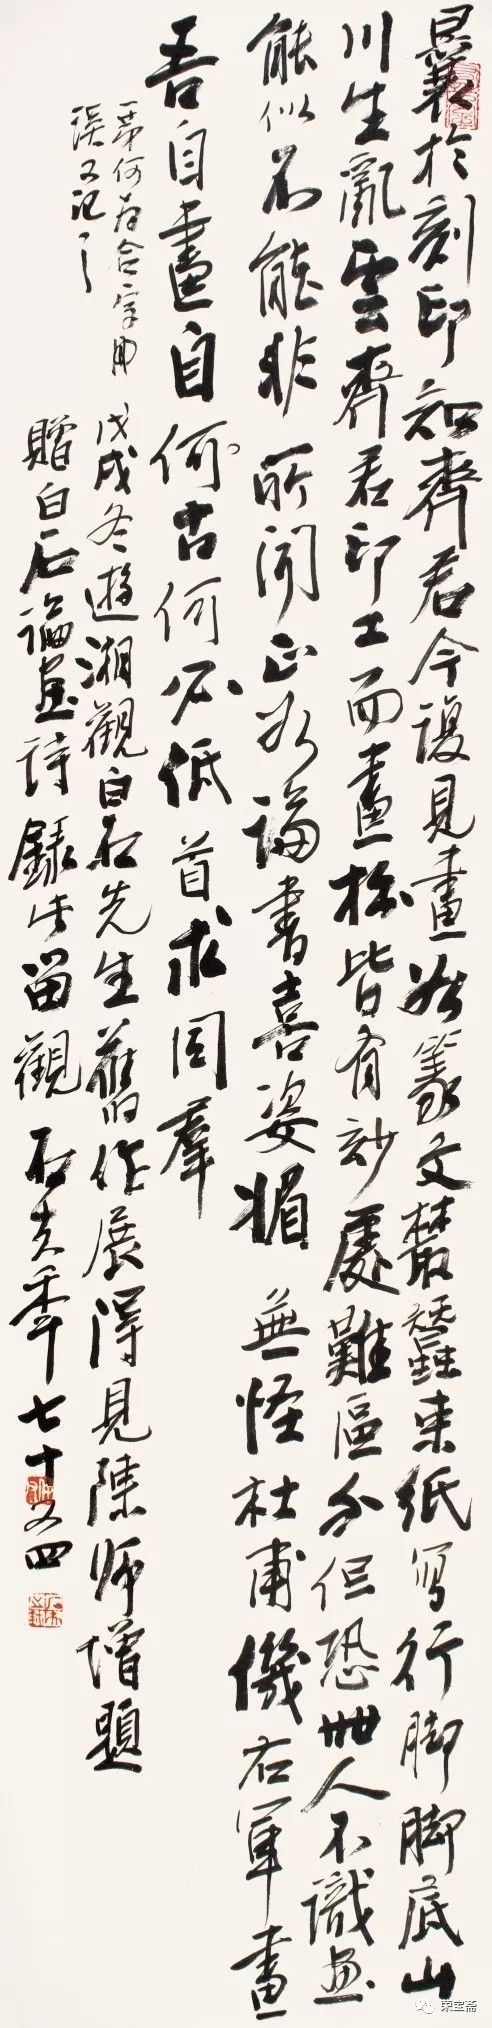 曩於刻印知齊君今復見畫如篆文叢蠶束紙寫行脚脚底山
川生亂雲齊君印工而畫拙皆有妙處難區分但恐世人不識畫
能似不能非所聞正如論書喜姿媚無怪杜甫僟右軍畫
吾自畫自何古何必低首求同羣
第何為合字
誤又記之
戊戌冬遊湘觀白石先生舊作展得見陳師增題
贈白石論畫詩錄此留觀年七十又四
荣宝斋